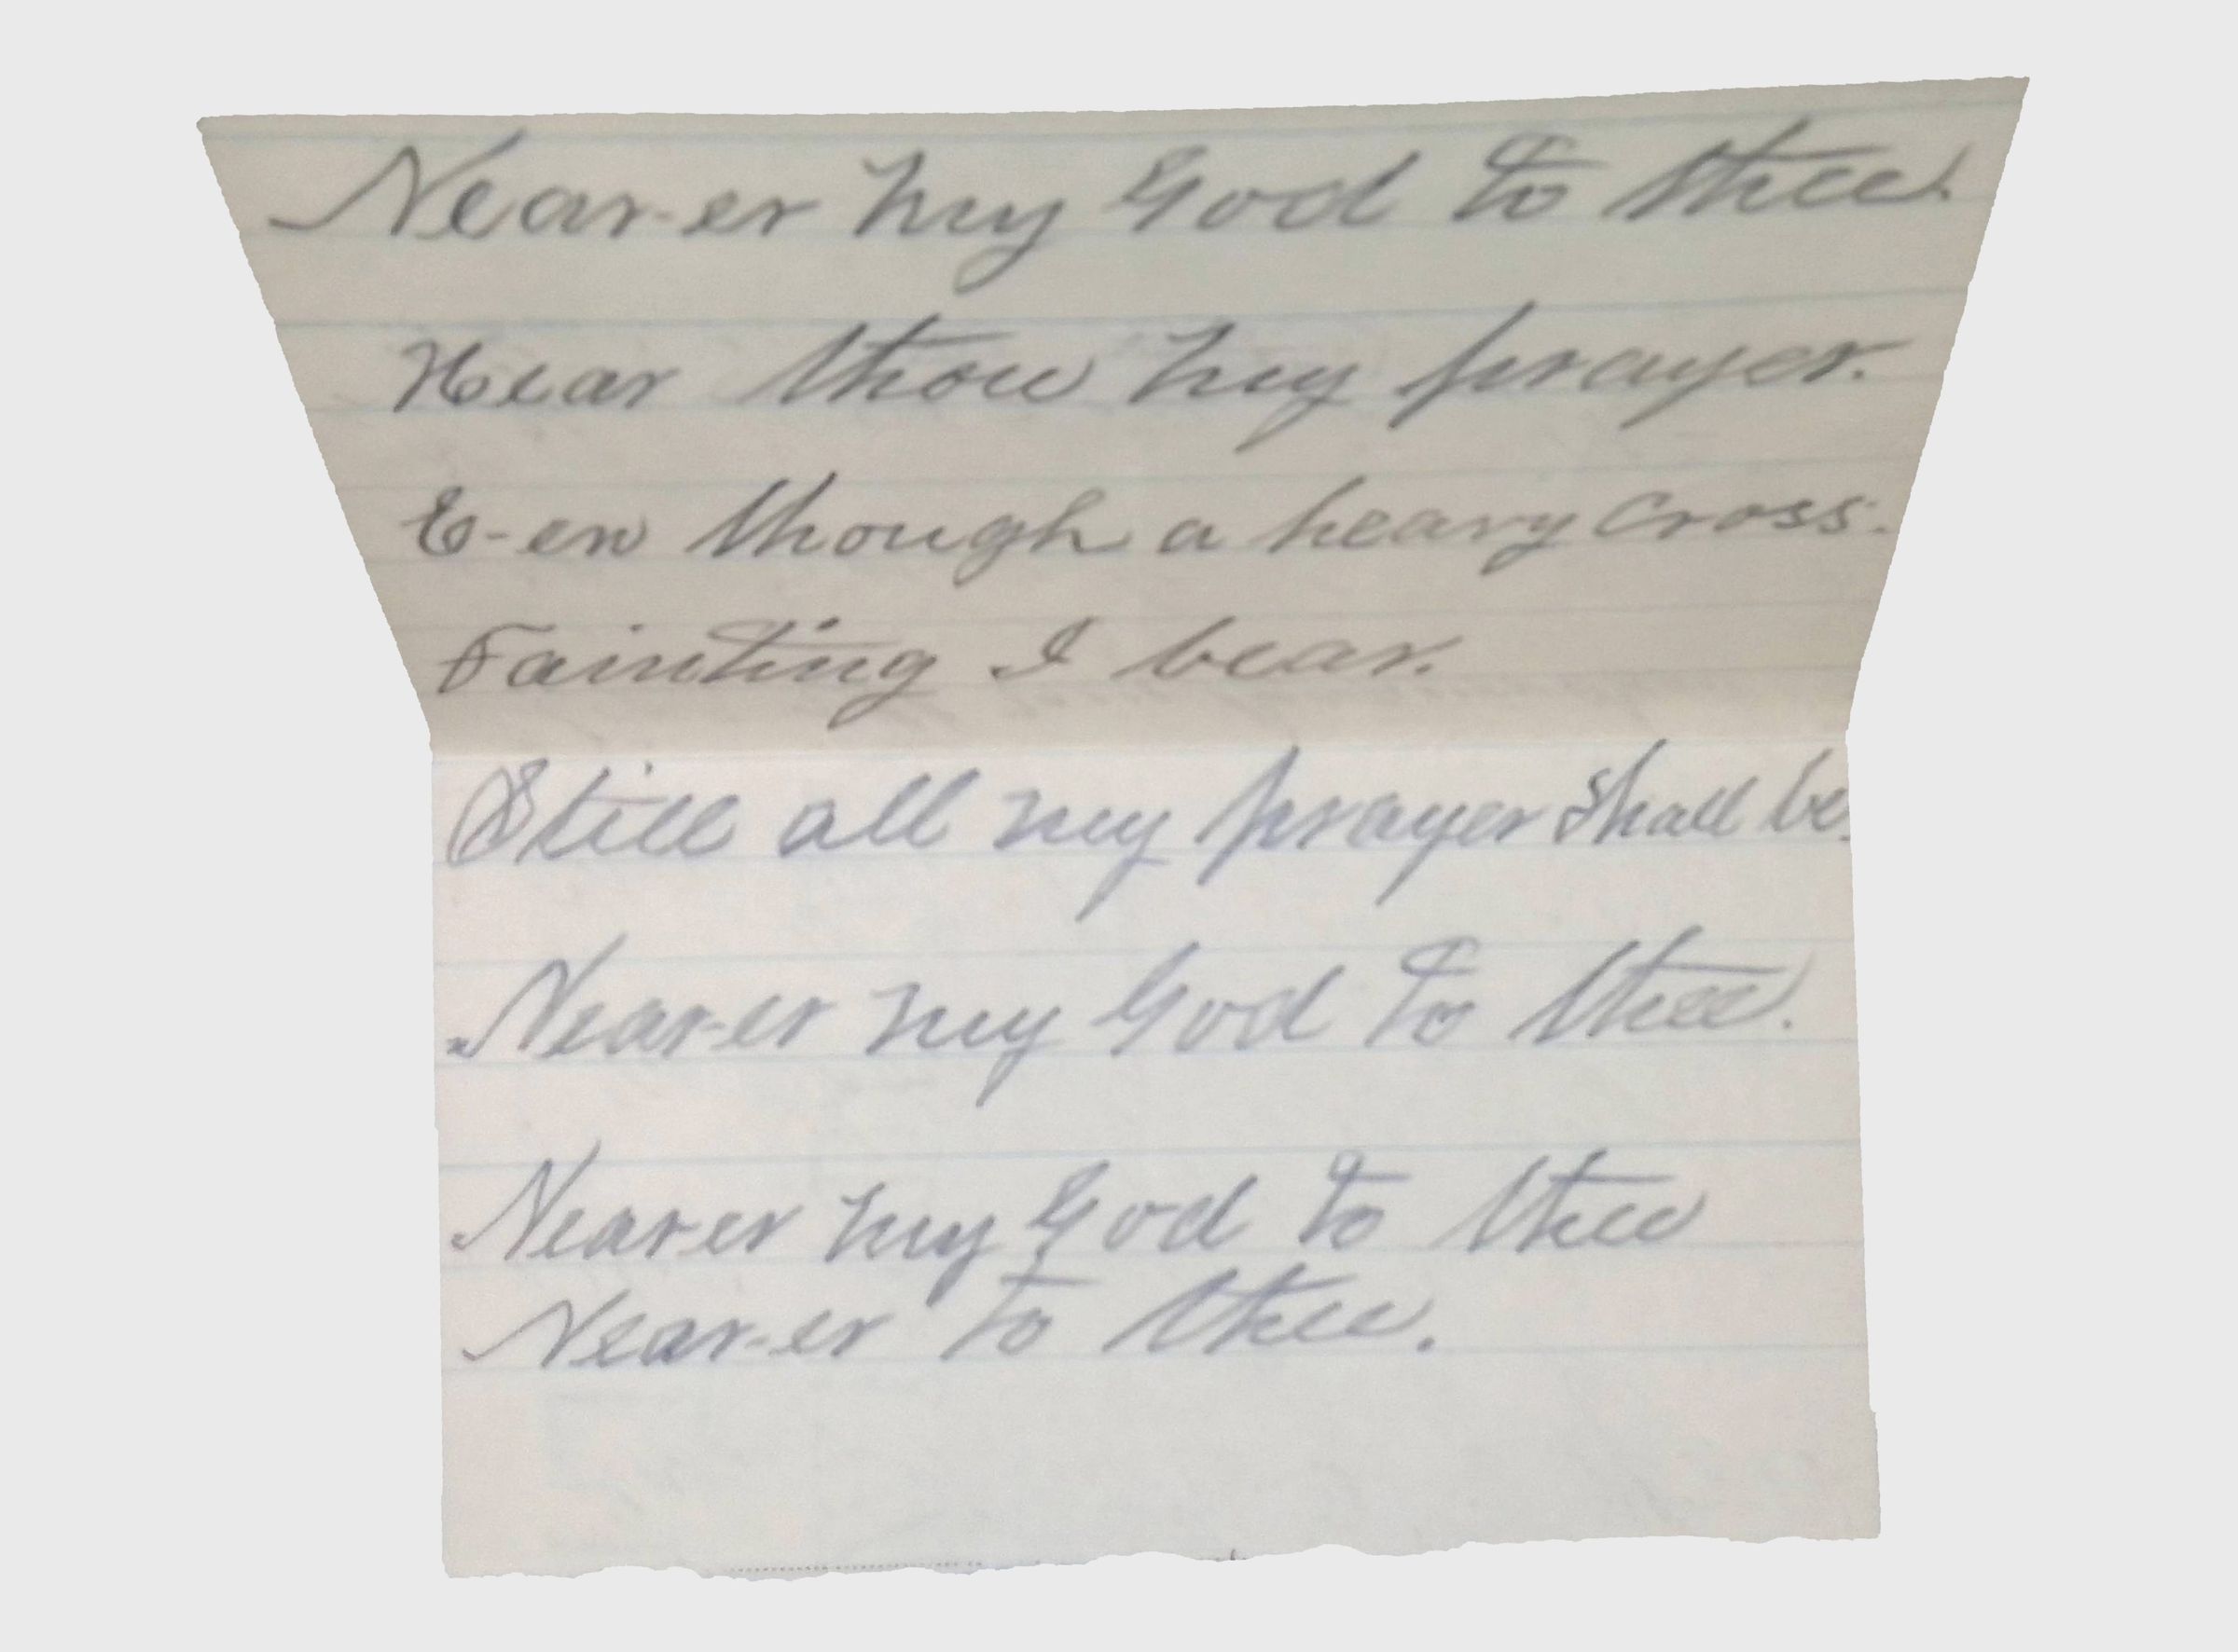 Near-er my God to thee.
Hear thou my prayer.
E-en though a heavy cross.
Fainting I bear.
Still all my prayer shall be.
Near-er my God to thee.
Nearer my God to thee
Near-er to thee.